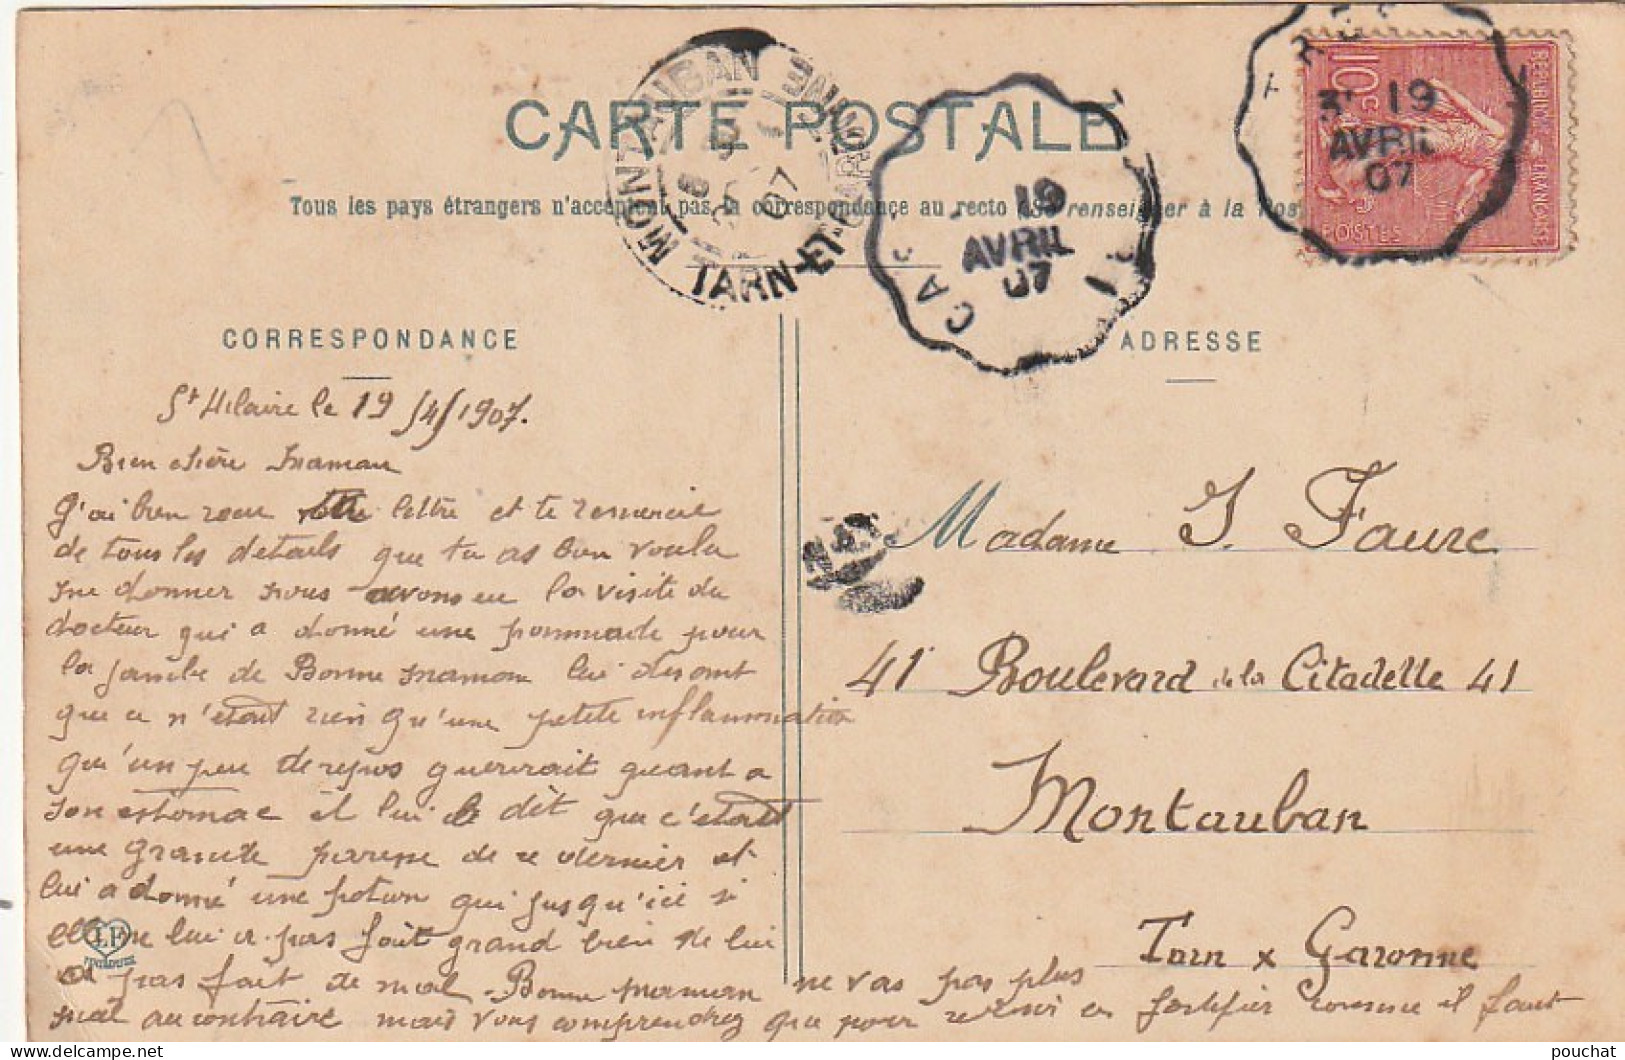 CARTE POSTALE
Tous les pays étrangers n'acceptent pas la correspondance au recto (Se renseigner à la Pos
MONTAUBAN
TARN-ET-GARONNE
07
CA
19
AVRIL
07
3° 19
AVRIL
07
10c
REPUBLIQUE FRANÇAISE
POSTES
CORRESPONDANCE
ADRESSE
St Hilaire le 19/4/1907.
Bien chère Maman
J'ai bien recu lettre et te remercie
de tous les détails que tu as bien voulu
me donner nous avons eu la visite du
docteur qui a donné une pommade pour
la jambe de Bonne maman lui disant
que ce n'était rien qu'une petite inflammation
qu'un peu de repos guerirait quant a
son estomac il lui dit que c'était
une grande paresse de ce dernier et
lui a donné une potion qui jusqu'ici si
elle ne lui a pas fait grand bien ne lui
a pas fait de mal. Bonne maman ne vas pas plus
mal au contraire mais vous comprendrez que pour se fortifier comme il faut
LF
TOULOUSE
Madame J. Faure
41 Boulevard de la Citadelle 41
Montauban
Tarn x Garonne
pouchat